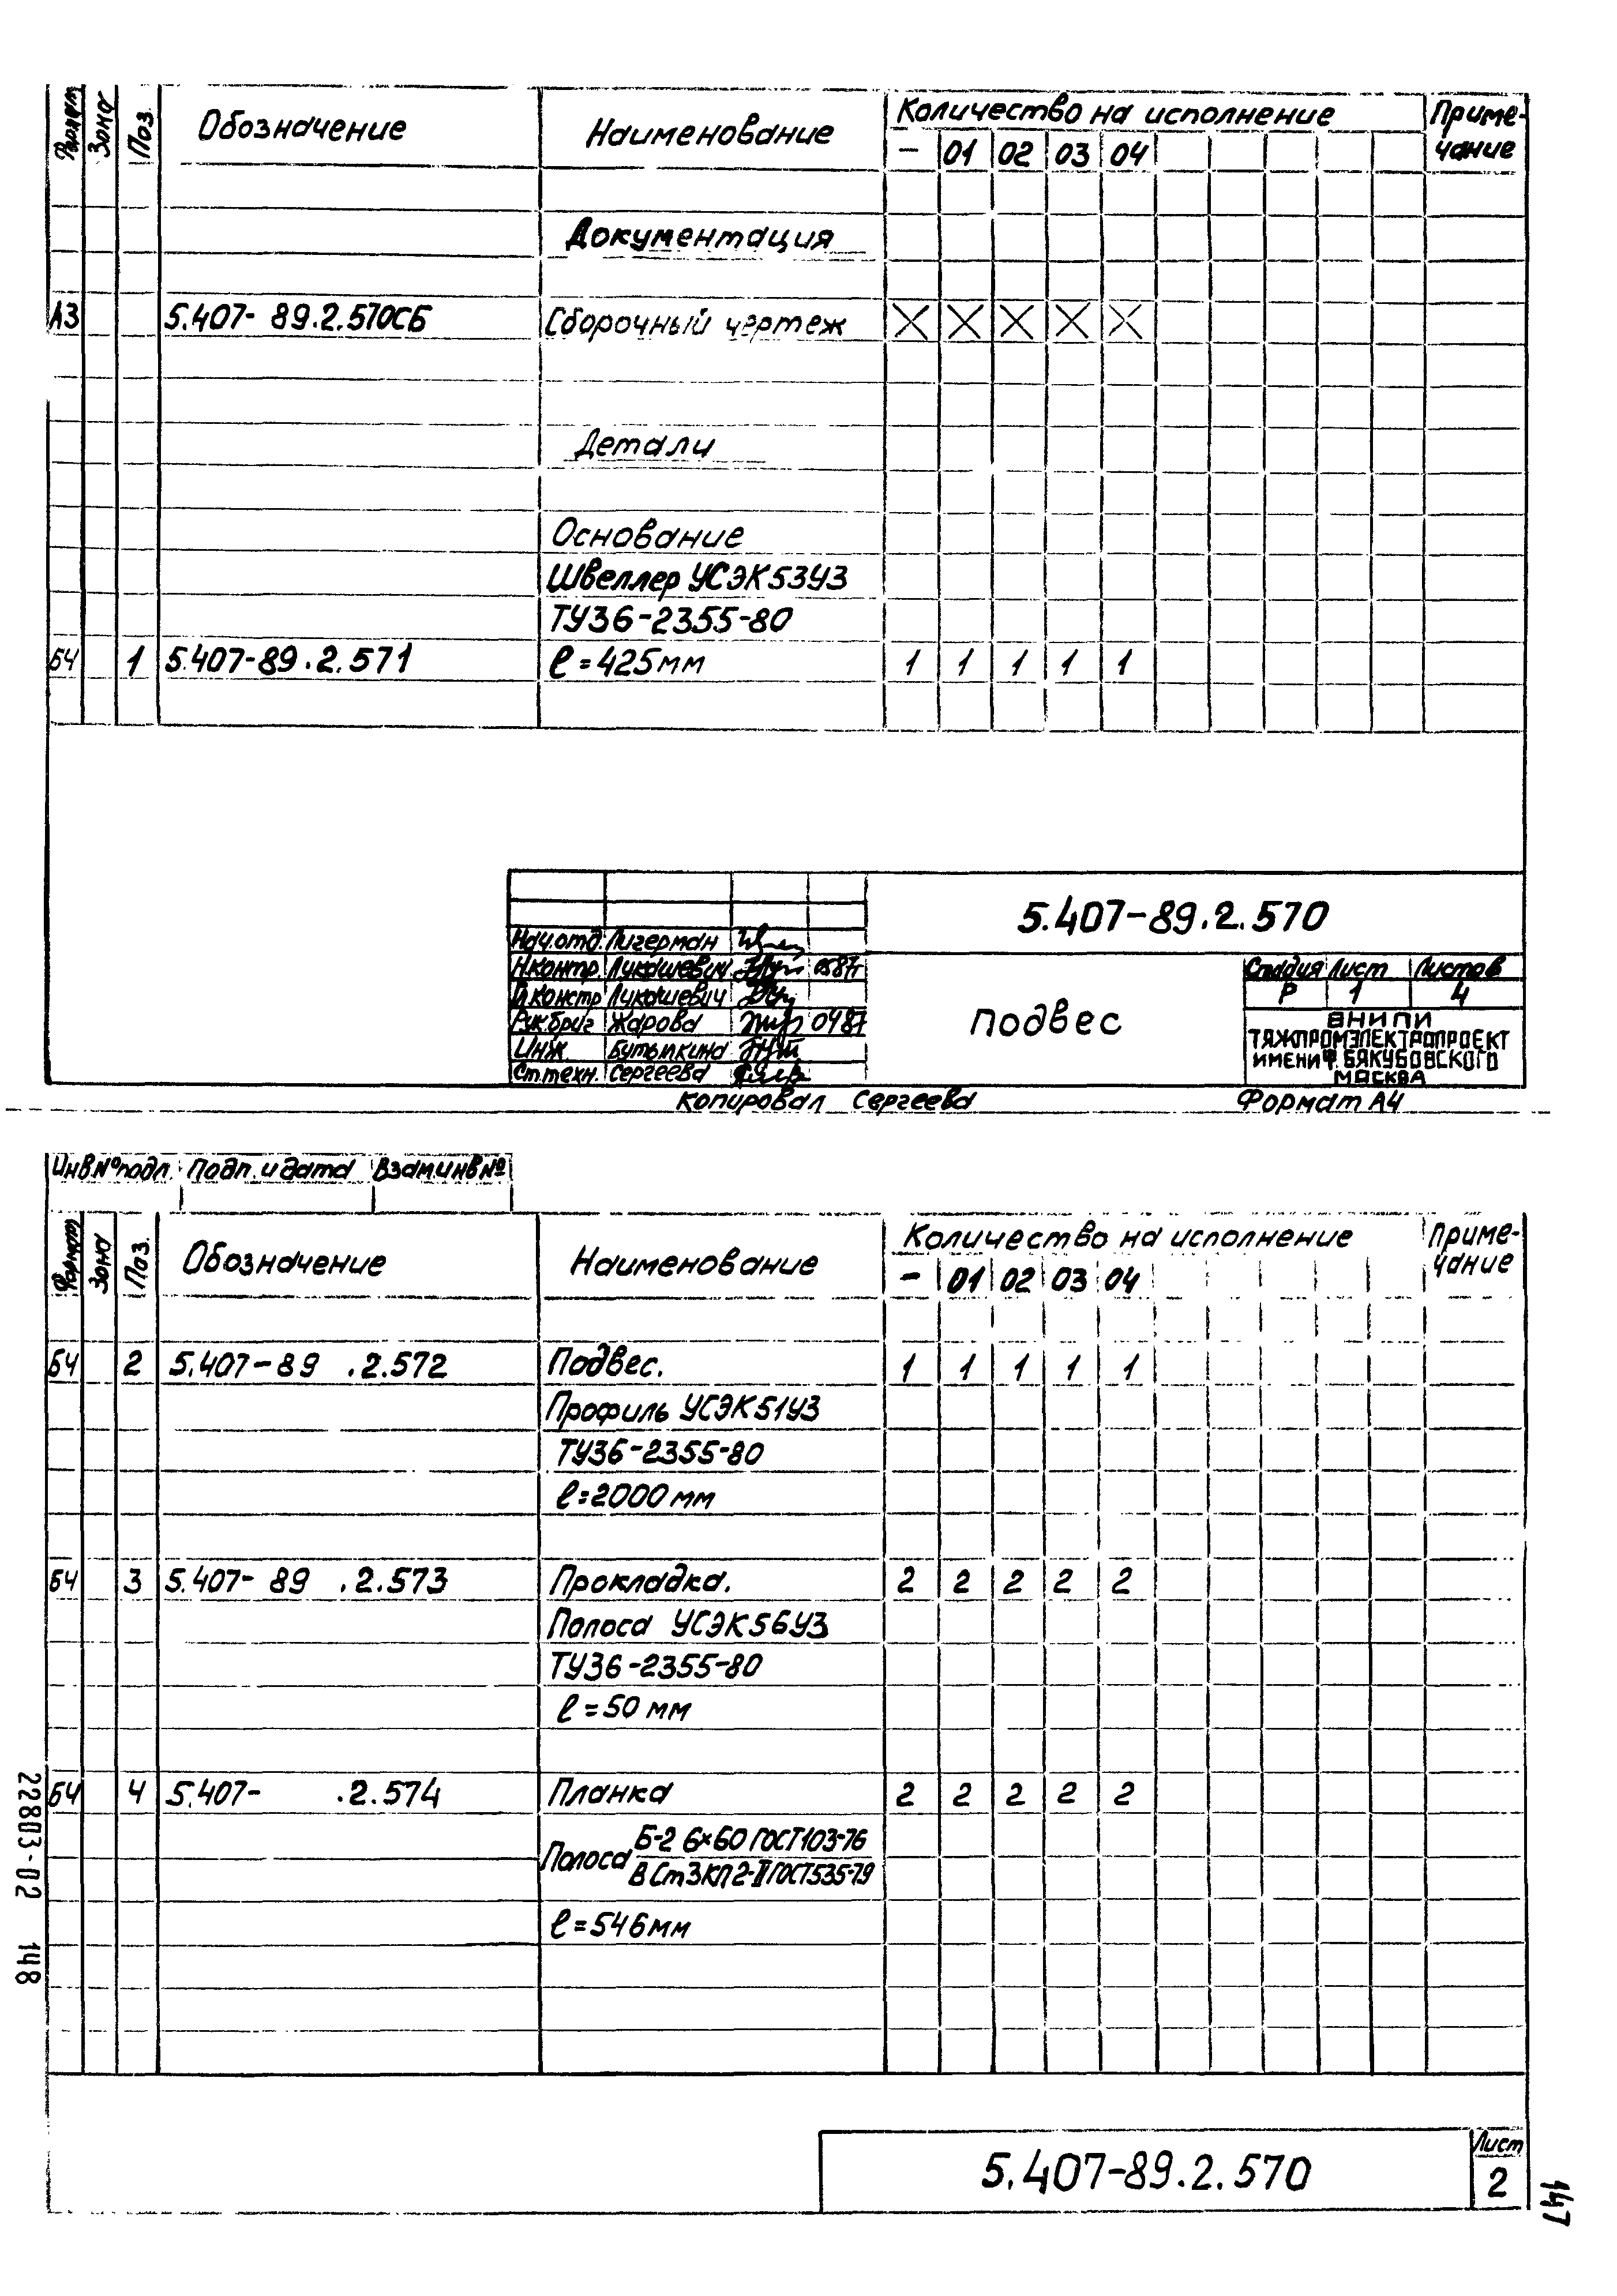 Формат Зона Поз. Обозначение Наименование Количество на исполнение Приме-
чание
– 01 02 03 04
Документация
А3 5.407-89.2.570СБ Сборочный чертеж X X X X X
Детали
Основание
Швеллер УСЭК53У3
ТУ36-2355-80
БЧ 1 5.407-89.2.571 ℓ=425мм 1 1 1 1 1
5.407-89.2.570
Нач.отд. Лигерман
Н.контр. Лукашевич 0587г
Гл.констр Лукашевич
Рук.бриг Жарова 0487
Инж. Бутылкина
Ст.техн. Сергеева
Подвес
Стадия Лист Листов
Р 1 4
ВНИПИ
ТЯЖПРОМЭЛЕКТРОПРОЕКТ
ИМЕНИ Ф.Б.ЯКУБОВСКОГО
МОСКВА
Копировал Сергеева Формат А4
Инв.№подл. Подп. и дата Взам.инв№
Формат Зона Поз. Обозначение Наименование Количество на исполнение Приме-
чание
– 01 02 03 04
БЧ 2 5.407-89 .2.572 Подвес. 1 1 1 1 1
Профиль УСЭК51У3
ТУ36-2355-80
ℓ=2000мм
БЧ 3 5.407-89 .2.573 Прокладка. 2 2 2 2 2
Полоса УСЭК56У3
ТУ36-2355-80
ℓ=50мм
БЧ 4 5.407- .2.574 Планка 2 2 2 2 2
Полоса Б-2 6×60 ГОСТ103-76
В Ст3КП2-II ГОСТ535-79
ℓ=546мм
5.407-89.2.570
Лист
2
22803-02 148
147